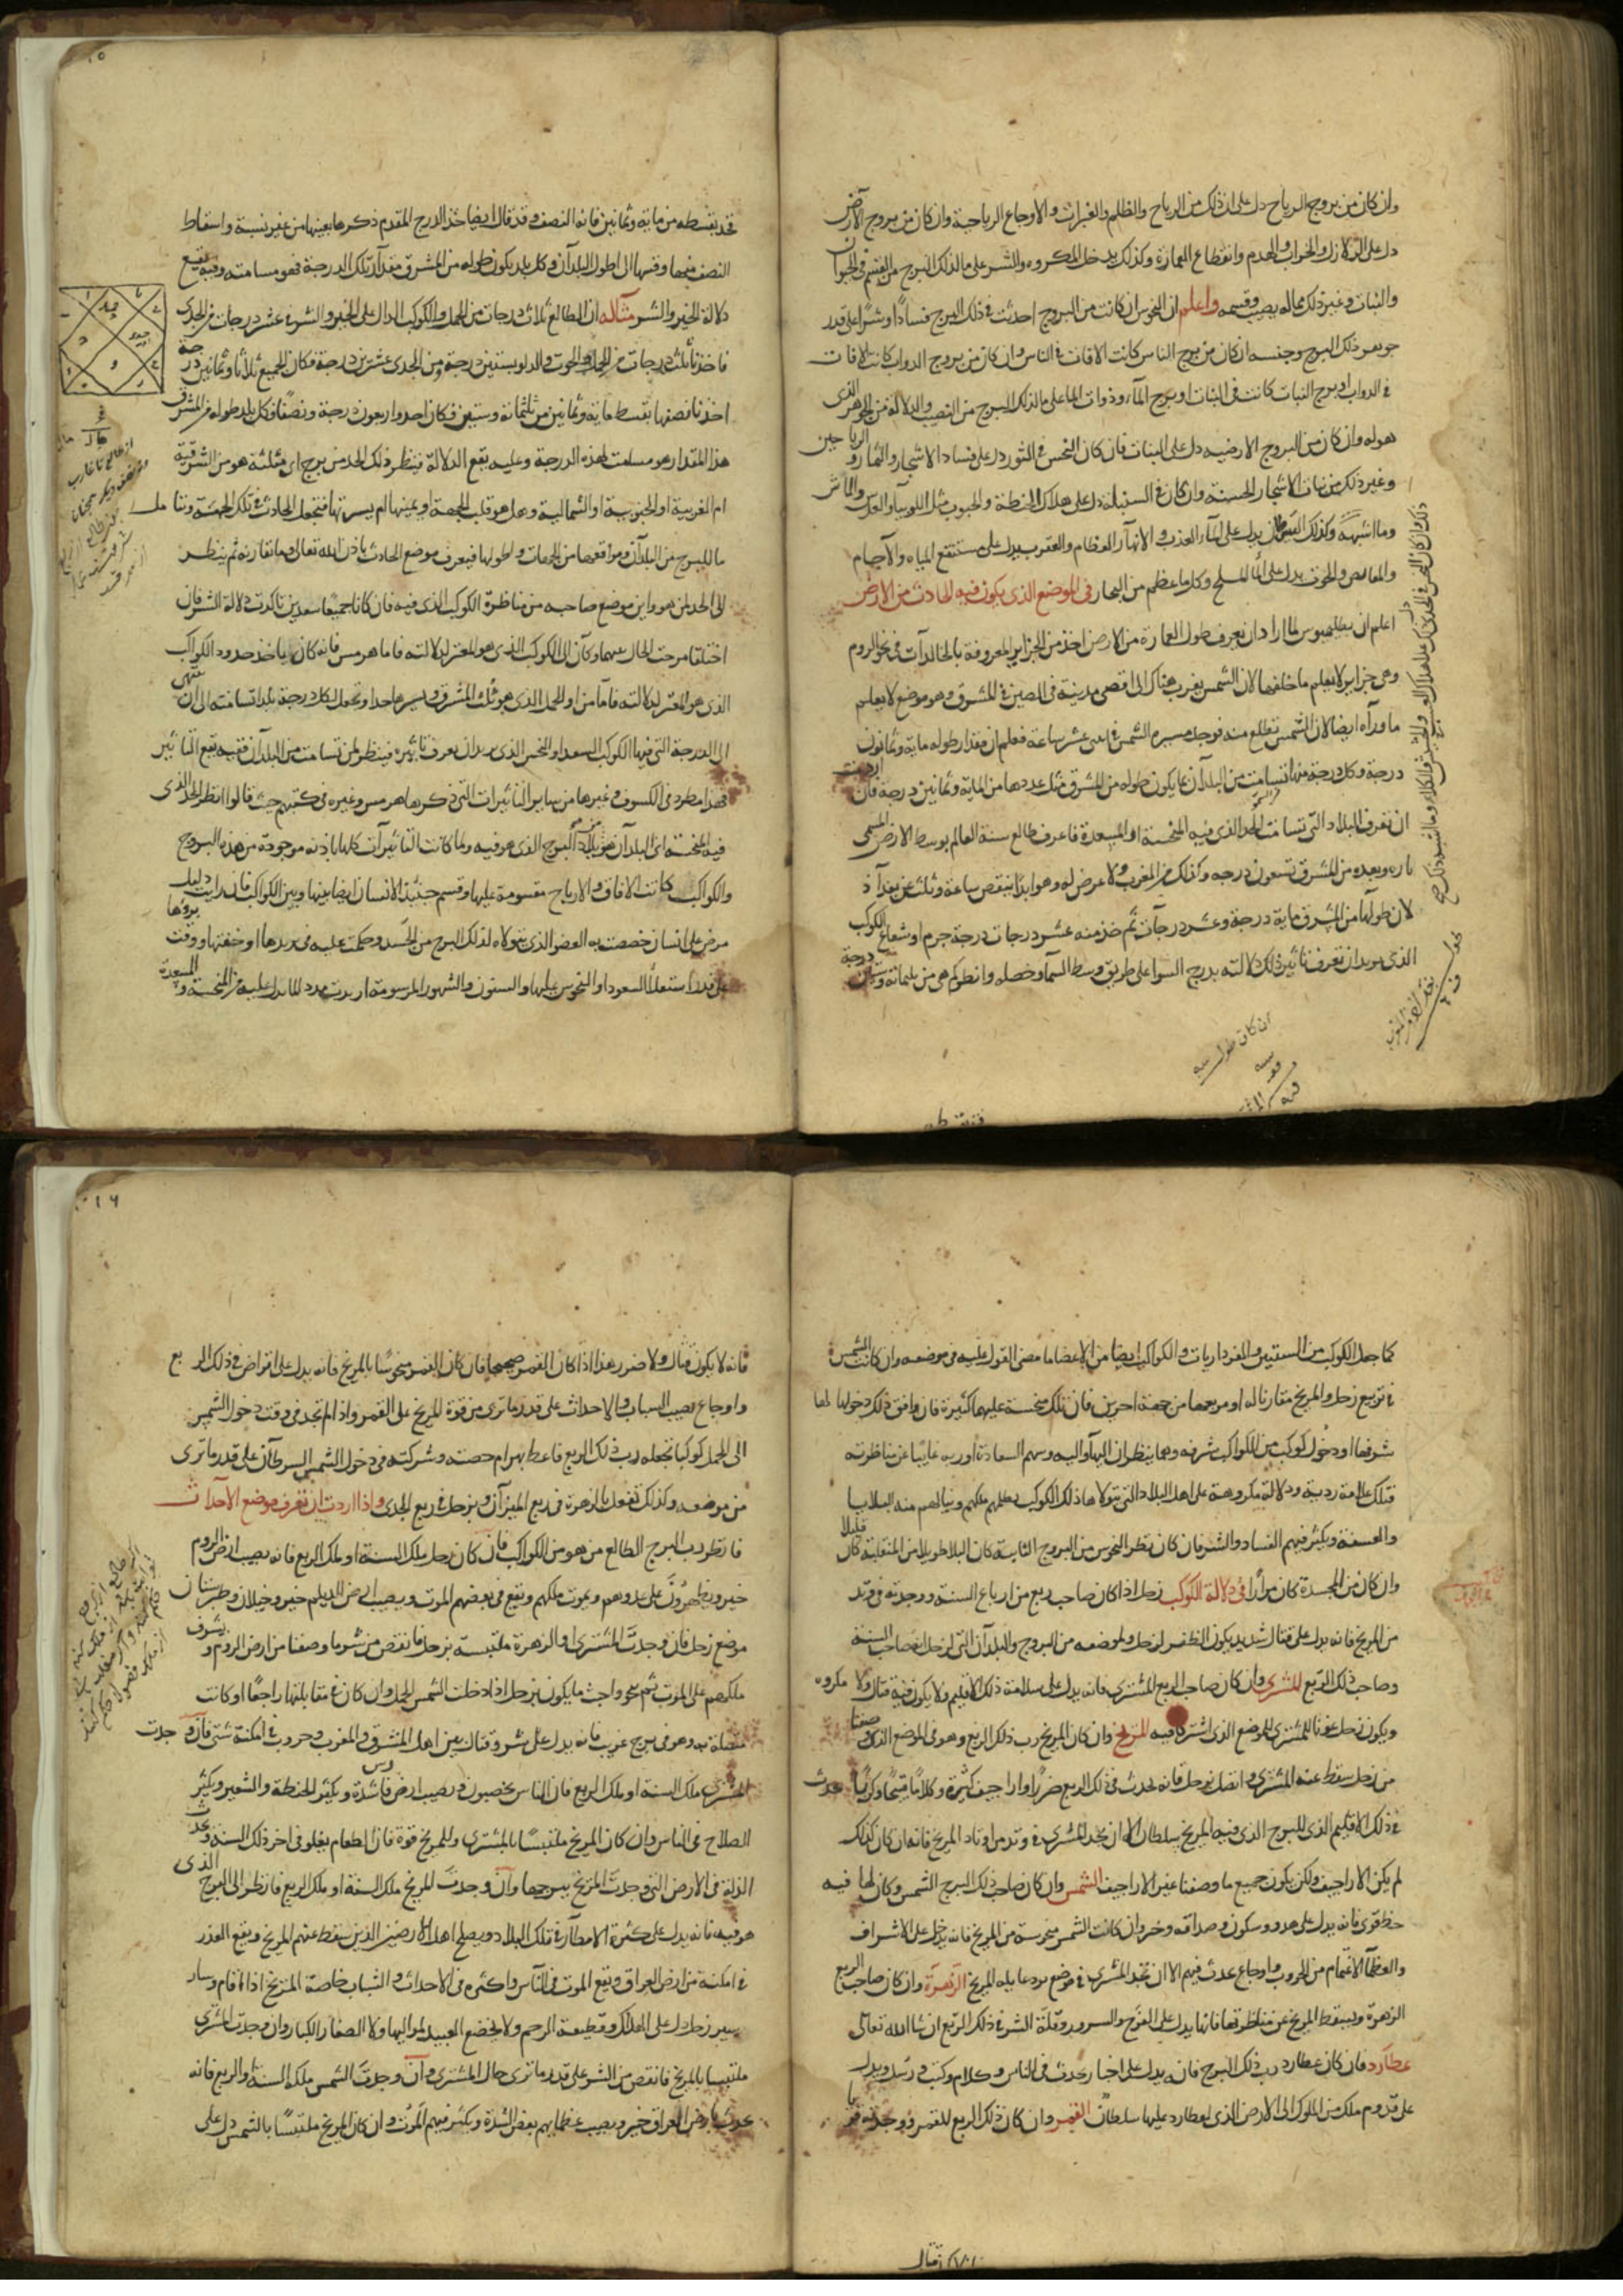 وان كان من بروج الرياح دل على ان ذلك من الرياح والظلم والغبرات والاوجاع الرياحية وان كان من بروج الارض
دل على الزلازل والخراب والهدم وانقطاع العمارة وكذلك يدخل المكروه والشر على ما لذلك البرج من القسم فى الحيوان
والنبات وغير ذلك مما له بصيب وقسمه واعلم ان النحوس ان كانت من البروج احدثت فى ذلك البرج فسادا وشرا على قدر
جوهر ذلك البرج وجنسه ان كان من برج الناس كانت الافات فى الناس وان كان من بروج الدواب كانت الافات
فى الدواب او برج النبات كانت فى النبات او برج الماء وذوات الماء على ما لذلك البرج من النصيب والدلالة من الجوهر الذى
هو له وان كان من البروج الارضيه دل على النبات فان كان النحس فى الثور دل على فساد الاشجار والثمار والرياحين
وغير ذلك من نبات الاشجار الحسنة وان كان فى السنبلة دل على هلاك الحنطة والحبوب مثل اللوبيا والعدس والماش
وما اشبهه وكذلك السرطان يدل على الماء العذب والانهار العظام والعقرب يدل على مستنقع المياه والآجام
والمغايص والحوت يدل على الماء المالح وكل ما عظم من البحار فى الموضع الذى يكون فيه الحادث من الارض
اعلم ان بطلميوس لما اراد ان يعرف طول العمارة من الارض اخذ من الجزاير المعروفة بالخالدات فى بحر الروم
وهى جزاير لا يعلم ما خلفها لان الشمس يغرب هناك الى اقصى مدينة فى الصين فى المشرق وهو موضع لا يعلم
ما وراه ايضا لان الشمس تطلع منه فوجد مسير الشمس فى اثنى عشر ساعة فعلم ان مقدار طوله ماية وثمانون
درجة وكل درجة منها تسامت من البلدان ما يكون طوله من المشرق مثل عددها من الماية وثمانين درجة فان اردت
ان تعرف البلاد التى تسامت الحد الذى فيه المنحسة او المسعدة فاعرف طالع سنة العالم بوسط الارض المسمى
باره وبعده من المشرق تسعون درجه وكذلك من المغرب ولا عرض له وهو ابدا ينقص ساعة وثلث عن بغداد
لان طولها من المشرق ماية درجة وعشر درجات ثم خذ منه عشر درجات درجة جرم او شعاع الكوكب
الذى يريد ان تعرف تاثير ذلك دلالته بدرج السوا على طريق وسط السماء وحصله وانظر كم هى من ثلثمائة وستين درجة
فخذ بقسطه من ماية وثمانين فانه النصف وقد قال ايضا خذ الدرج المقدم ذكرها بعينها من غير نسبة واسقاط
النصف منها وقسها الى اطوال البلدان وكل بلد يكون طوله من المشرق مقدار تلك الدرجة فهو مسامته وفيه تقع
دلالة الخير والشر مثاله ان الطالع ثلاث درجات من الحمل والكوكب الدال على الخير والشر فى عشر درجات من الجدى
فاخذنا ثلث درجات من الحمل والحوت والدلو بستين درجة ومن الجدى عشرين درجة فكان الجميع ثلاثا وثمانين درجة
اخذنا نصفها بقسط ماية وثمانين من ثلثمائة وستين فكان احد واربعون درجة ونصفا فكل بلد طوله من المشرق
هذا المقدار هو مسامت لهذه الدرجة وعليه يقع الدلالة فينظر ذلك الحد من برج اى مثلثه هو من الشرقية
ام الغربية او الجنوبية او الشمالية وهل هو قلب الجهة او يمينها ام يسرتها فتجعل الحادث فى تلك الجهة وتتامل
ما للبرج من البلدان ومواقعها من الجهات واطولها فيعرف موضع الحادث باذن الله تعالى وما تقاربه ثم ينظر
الى الحد لمن هو واين موضع صاحبه من مناظرة الكوكب الذى فيه فان كانا جميعا سعدين تاكدت دلالة الشر فان
اختلفا مزجت الحال بينهما وكان الى الكوكب الذى هو المعتز لدلالته فاما هرمس فانه كان ياخذ حدود الكواكب
الذى هو المعتز لدلالته فاما من اول الحمل الذى هو ثلث المشرق ويسيرها حدا وتجعل لكل درجة بلدا تسامته الى ان ينتهى
الى الدرجة التى فيها الكوكب السعد او النحس الذى يريد ان يعرف تاثيره فينظر لمن تسامت من البلدان ففيه يقع التاثير
فهذا مطرد فى الكسوف وغيرها من ساير التاثيرات التى ذكرها هرمس وغيره فى كتبهم حيث قالوا انظر الحد الذى
فيه المنحسة اى البلدان هو بلد البرج الذى هو فيه ولما كانت التاثيرات كلها باذنه موجودة من هذه البروج
والكواكب كانت الافاق والارياح مقسومة عليها وقسم جثة الانسان ايضا بينها وبين الكواكب فان رايت دليل
مرض على انسان خصصت به العضو الذى يتولاه لذلك البرج من الجسد وحكمت عليه فى بدها او خفتها ووقت بروها
على قدر استعلا السعود او النحوس عليها والسنون والشهور المرسومة اربت مدد الما يدل عليه من المنحسة والمسعدة
كما جعل الكوكب من السنين والفرداريات والكواكب ايضا من الاعضا ما مضى القول عليه فى موضعه وان كانت الشمس
فى تربيع زحل والمريخ مقارنا له او مربعها من جهة اخرى فان تلك منحسة عليها كثيرة فان وافق ذلك دخولها لها
شرفها او دخول كوكب من الكواكب شرفه وهما ينظران اليها واليه وسهم السعادة او ربه غايبا عن مناظرته
فتلك علامة ردية ودلالة مكروهة على اهل البلاد التى يتولاها ذلك الكوكب يظلمهم ملكهم وينالهم منه البلايا
والعسفة ويكثر فيهم الفساد والشر فان كان نظر النحوس من البروج الثابتة كان البلا طويلا من المنقلبة كان قليلا
وان كان من المجسدة كان مرارا فى دلالة الكوكب زحل اذا كان صاحب ربع من ارباع السنة ووجدته فى وتد
من المريخ فانه يدل على قتال شديد يكون الظفر لزحل ولموضعه من البروج والبلدان التى لزحل لصاحب السنة
وصاحب ذلك الربع المشترى وان كان صاحب الربع المشترى فانه يدل على سلامة ذلك الاقليم ولا يكون فيه قتال ولا مكروه
ويكون زحل عونا للمشترى للموضع الذى اشتركا فيه المريخ وان كان المريخ رب ذلك الربع وهو فى الموضع الذى وصفنا
من زحل سقط عنه المشترى واتصل بزحل فانه يحدث فى ذلك الربع ضررا واراجيف كثيرة وكلاما قبيحا وكربا يحدث
فى ذلك الاقليم الذى للبرج الذى فيه المريخ سلطان الا ان تجد المشترى فى وتد من اوتاد المريخ فانه ان كان كذلك
لم يكن الاراجيف ولكن يكون جميع ما وصفنا غير الاراجيف الشمس وان كان صاحب ذلك البرج الشمس وكان لها فيه
حظ قوى فانه يدل على هدو وسكون وصداقه وخير وان كانت الشمس منحوسة من المريخ فانه يدخل على الاشراف
والعظما الاغتمام من الحروب واوجاع تحدث فيهم الا ان تجد المشترى فى موضع يرد عاديه المريخ الزهرة وان كان صاحب الربع
الزهرة ويسقط المريخ عن مناظرتها فانها يدل على الفرح والسرور وقلة الشر فى ذلك الربع ان شا الله تعالى
عطارد فان كان عطارد رب ذلك البرج فانه يدل على اخبار يحدث فى الناس وكلام وكتب ورسل ويدل
على قدوم ملك من الملوك الى الارض الذى لعطارد عليها سلطان القمر وان كان ذلك الربع للقمر ووجدته قويا
فانه لا يكون قتال ولا ضرر هذا اذا كان القمر صحيحا فان كان القمر منحوسا بالمريخ فانه يدل على امراض فى ذلك الربع
واوجاع يصيب الشباب والاحداث على قدر ما ترى من قوة المريخ على القمر واذا لم تجد فى وقت دخول الشمس
الى الحمل كوكبا تجعله رب ذلك الربع فاعط بهرام حصته وشركته فى دخول الشمس السرطان على قدر ما ترى
من موضعه وكذلك تفعل بالزهرة فى ربع الميزان وبزحل فى ربع الجدى واذا اردت ان تعرف موضع الاحداث
فانظر رب البرج الطالع من هو من الكواكب فان كان زحل ملك السنة او ملك الربع فانه يصيب ارض الروم
خير ويظهرون على عدوهم ويموت ملكهم ويقع فى بعضهم الموت ويصيب ارض الديلم خير وجيلان وطبرستان
موضع زحل فان وجدت المشترى والزهرة ملتبسة بزحل فانقص من شر ما وصفنا من ارض الروم ويشرف
ملكهم على الموت ثم ينجو واخبث ما يكون بزحل اذا دخلت الشمس الحمل وان كان فى مقابلتها راجعا او كانت
متصلة به وهو فى برج غريب فانه يدل على شر وقتال بين اهل المشرق والمغرب وحروب فى امكنة شتى فان وجدت
المشترى ملك السنة او ملك الربع فان الناس يخصبون ويصيب ارض فارس شدة ويكثر الحنطة والشعير ويكثر
الصلاح فى الناس وان كان المريخ ملتبسا بالمشترى وللمريخ قوة فان الطعام يغلو فى اخر ذلك السنة ويحدث
الزلزلة فى الارض التى وجدت المريخ ببرجها وان وجدت المريخ ملك السنة او ملك الربع فانظر الى البرج الذى
هو فيه فانه يدل على كثرة الامطار فى تلك البلاد ويصلح اهل الارضين الذين سقط عنهم المريخ ويقع الغدر
فى امكنة من ارض العراق ويقع الموت فى الناس واكثره فى الاحداث والشباب خاصة المريخ اذا اقام وسار
بسير زحل دل على الهلاك وقطيعة الرحم ولا يخضع العبيد لمواليها ولا الصغار الكبار وان وجدت المشترى
ملتبسا بالمريخ فانقص من الشر على قدر ما ترى حال المشترى وان وجدت الشمس ملك السنة او الربع فانه
يحدث بارض العراق خير ويصيب عظمايهم بعض الشدة ويكثر فيهم الموت وان كان المريخ ملتبسا بالشمس دل على